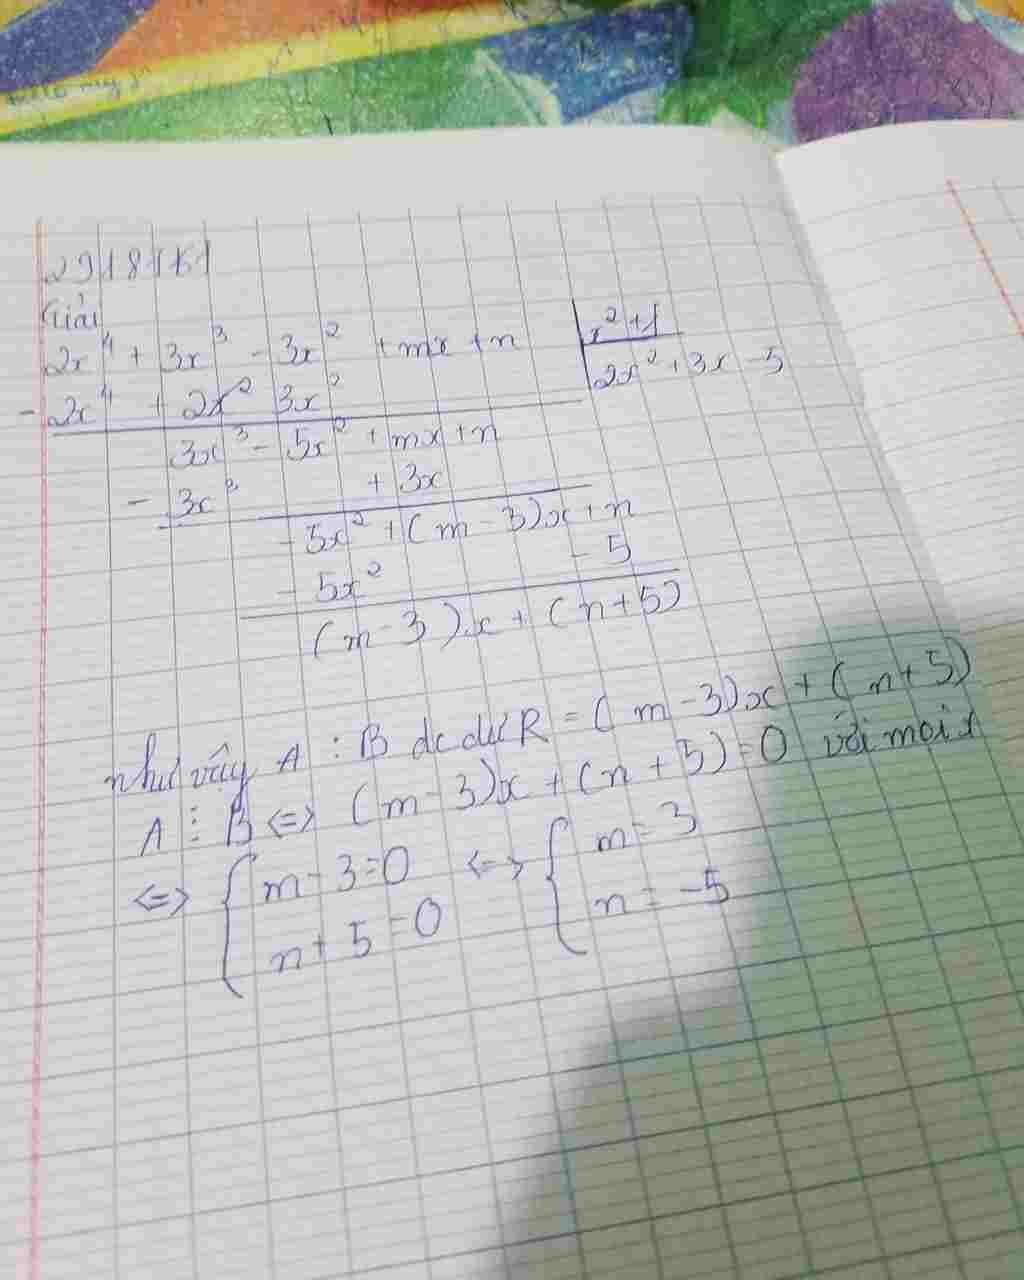 Giải
2x⁴ + 3x³ - 3x² + mx + n | x² + 1
- 2x⁴ + 2x² 3x² | 2x² + 3x - 5
3x³ - 5x² + mx + n
- 3x³ + 3x
- 5x² + (m - 3)x + n
- 5x² - 5
(m - 3)x + (n + 5)
như vậy A : B dc dư R = (m - 3)x + (n + 5)
A ⋮ B <=> (m - 3)x + (n + 5) = 0 với mọi x
<=> { m - 3 = 0 <=> { m = 3
n + 5 = 0 n = -5